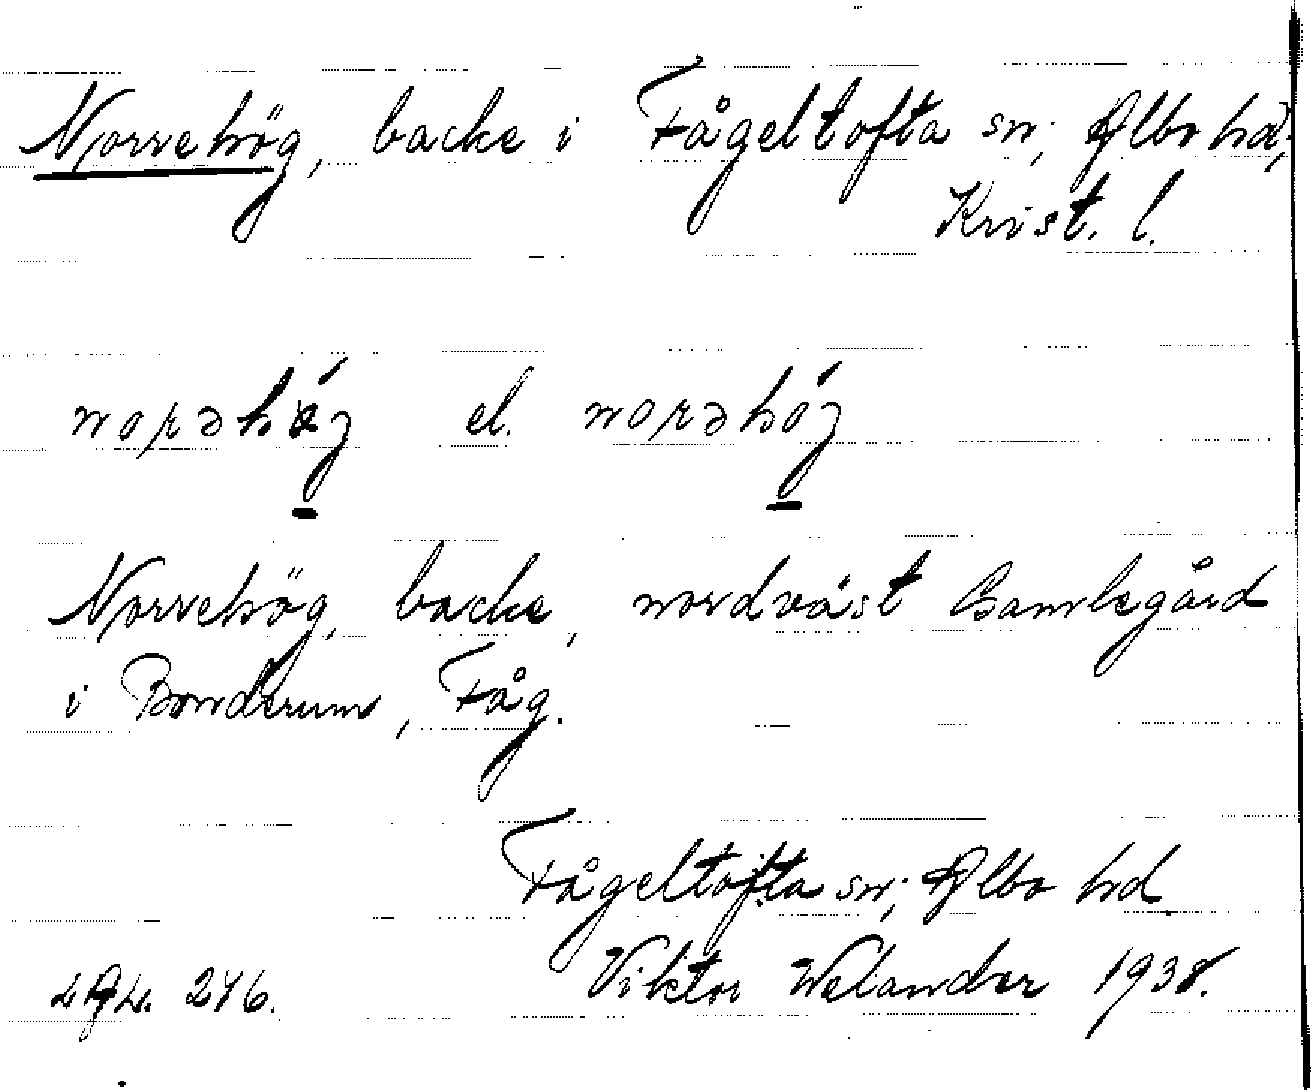 Norrehög, backe i Fågeltofta sn; Albo hd;
Krist. l.
norəhǿʒ el. norəhóʒ
Norrehög, backe, nordväst Gamlegård
i Bonderum, Fåg.
Fågeltofta sn; Albo hd
LAL. 276. Viktor Welander 1938.